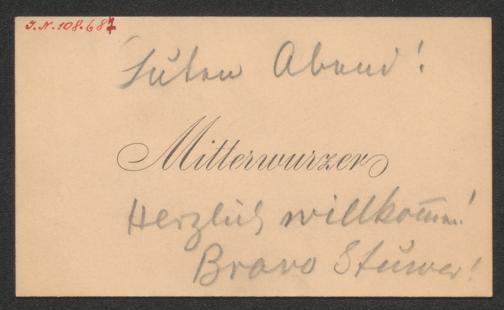 I.N. 108.687
Guten Abend!
Mitterwurzer
Herzlich willkom̅en!
Bravo Stuwer!